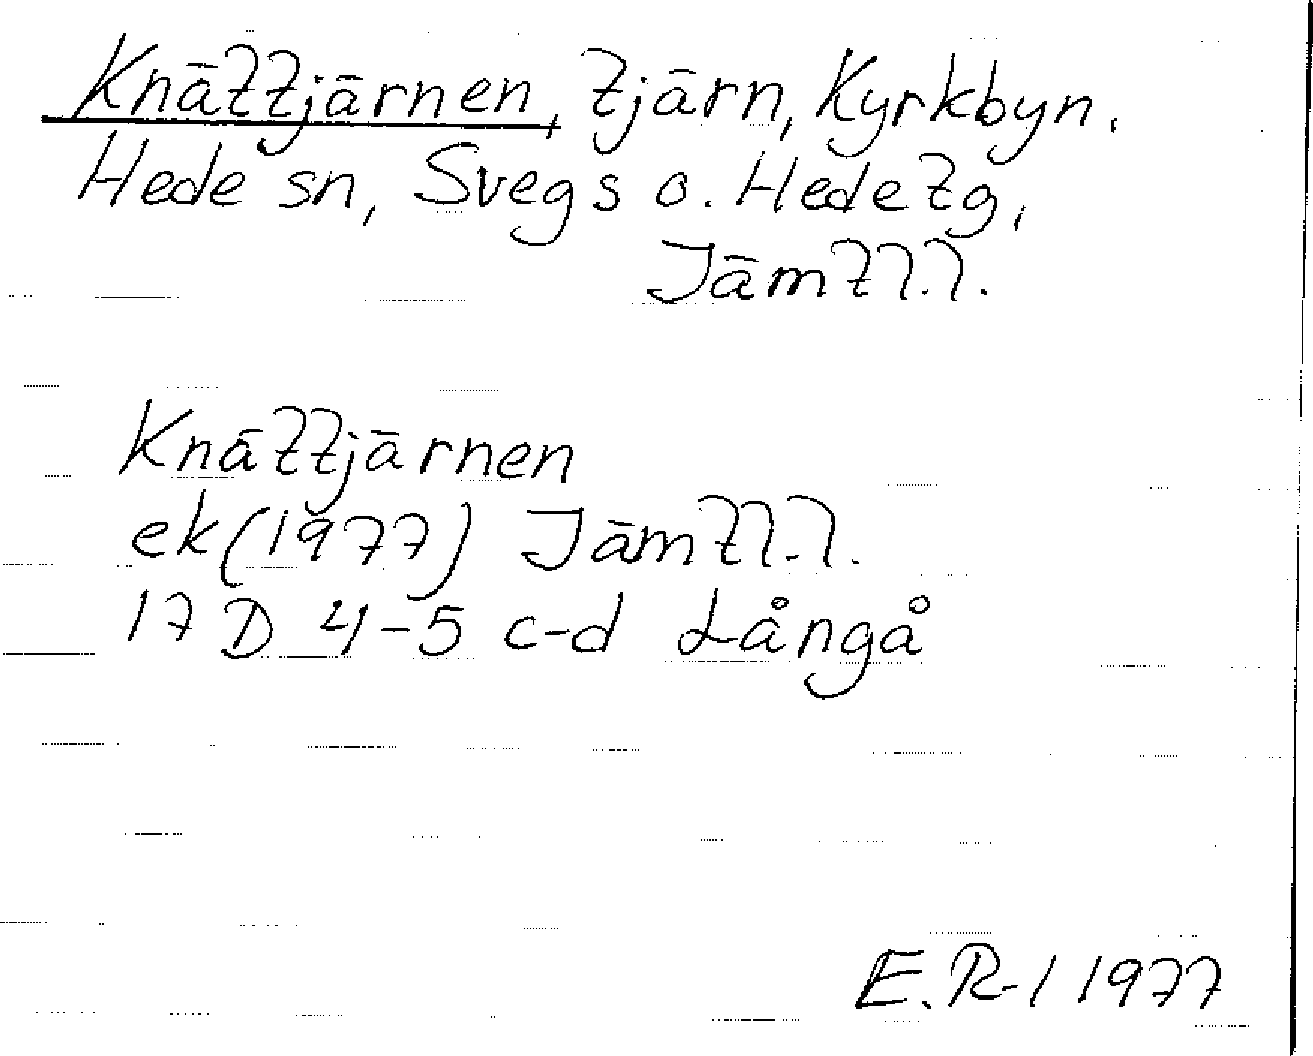 Knättjärnen, tjärn, Kyrkbyn,
Hede sn, Svegs o. Hede tg,
Jämtl.l.
Knättjärnen
ek (1977) Jämtl.l.
17 D 4-5 c-d Långå
E. R-l 1977